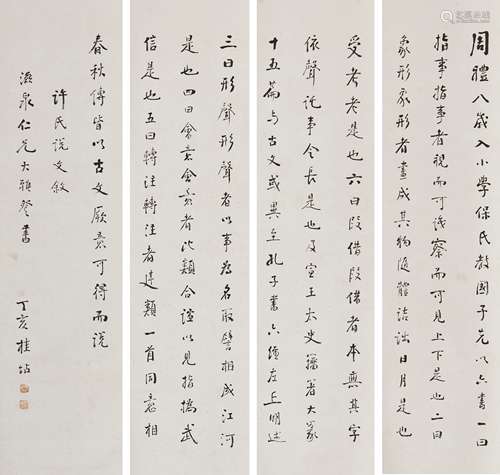 周禮八歲入小學保氏教國子先以六書一曰
指事指事者視而可識察而可見上下是也二曰
象形象形者畫成其物隨體詰詘日月是也
受考老是也六曰叚借叚借者本無其字
依聲託事令長是也及宣王大史籀著大篆
十五篇与古文或異至孔子書六經左丘明述
三曰形聲形聲者以事為名取譬相成江河
是也四曰會意會意者比類合誼以見指撝武
信是也五曰轉注轉注者建類一首同意相
春秋傳皆以古文厥意可得而說
許氏說文敘
滋泉仁兄大雅 書
丁亥桂坫